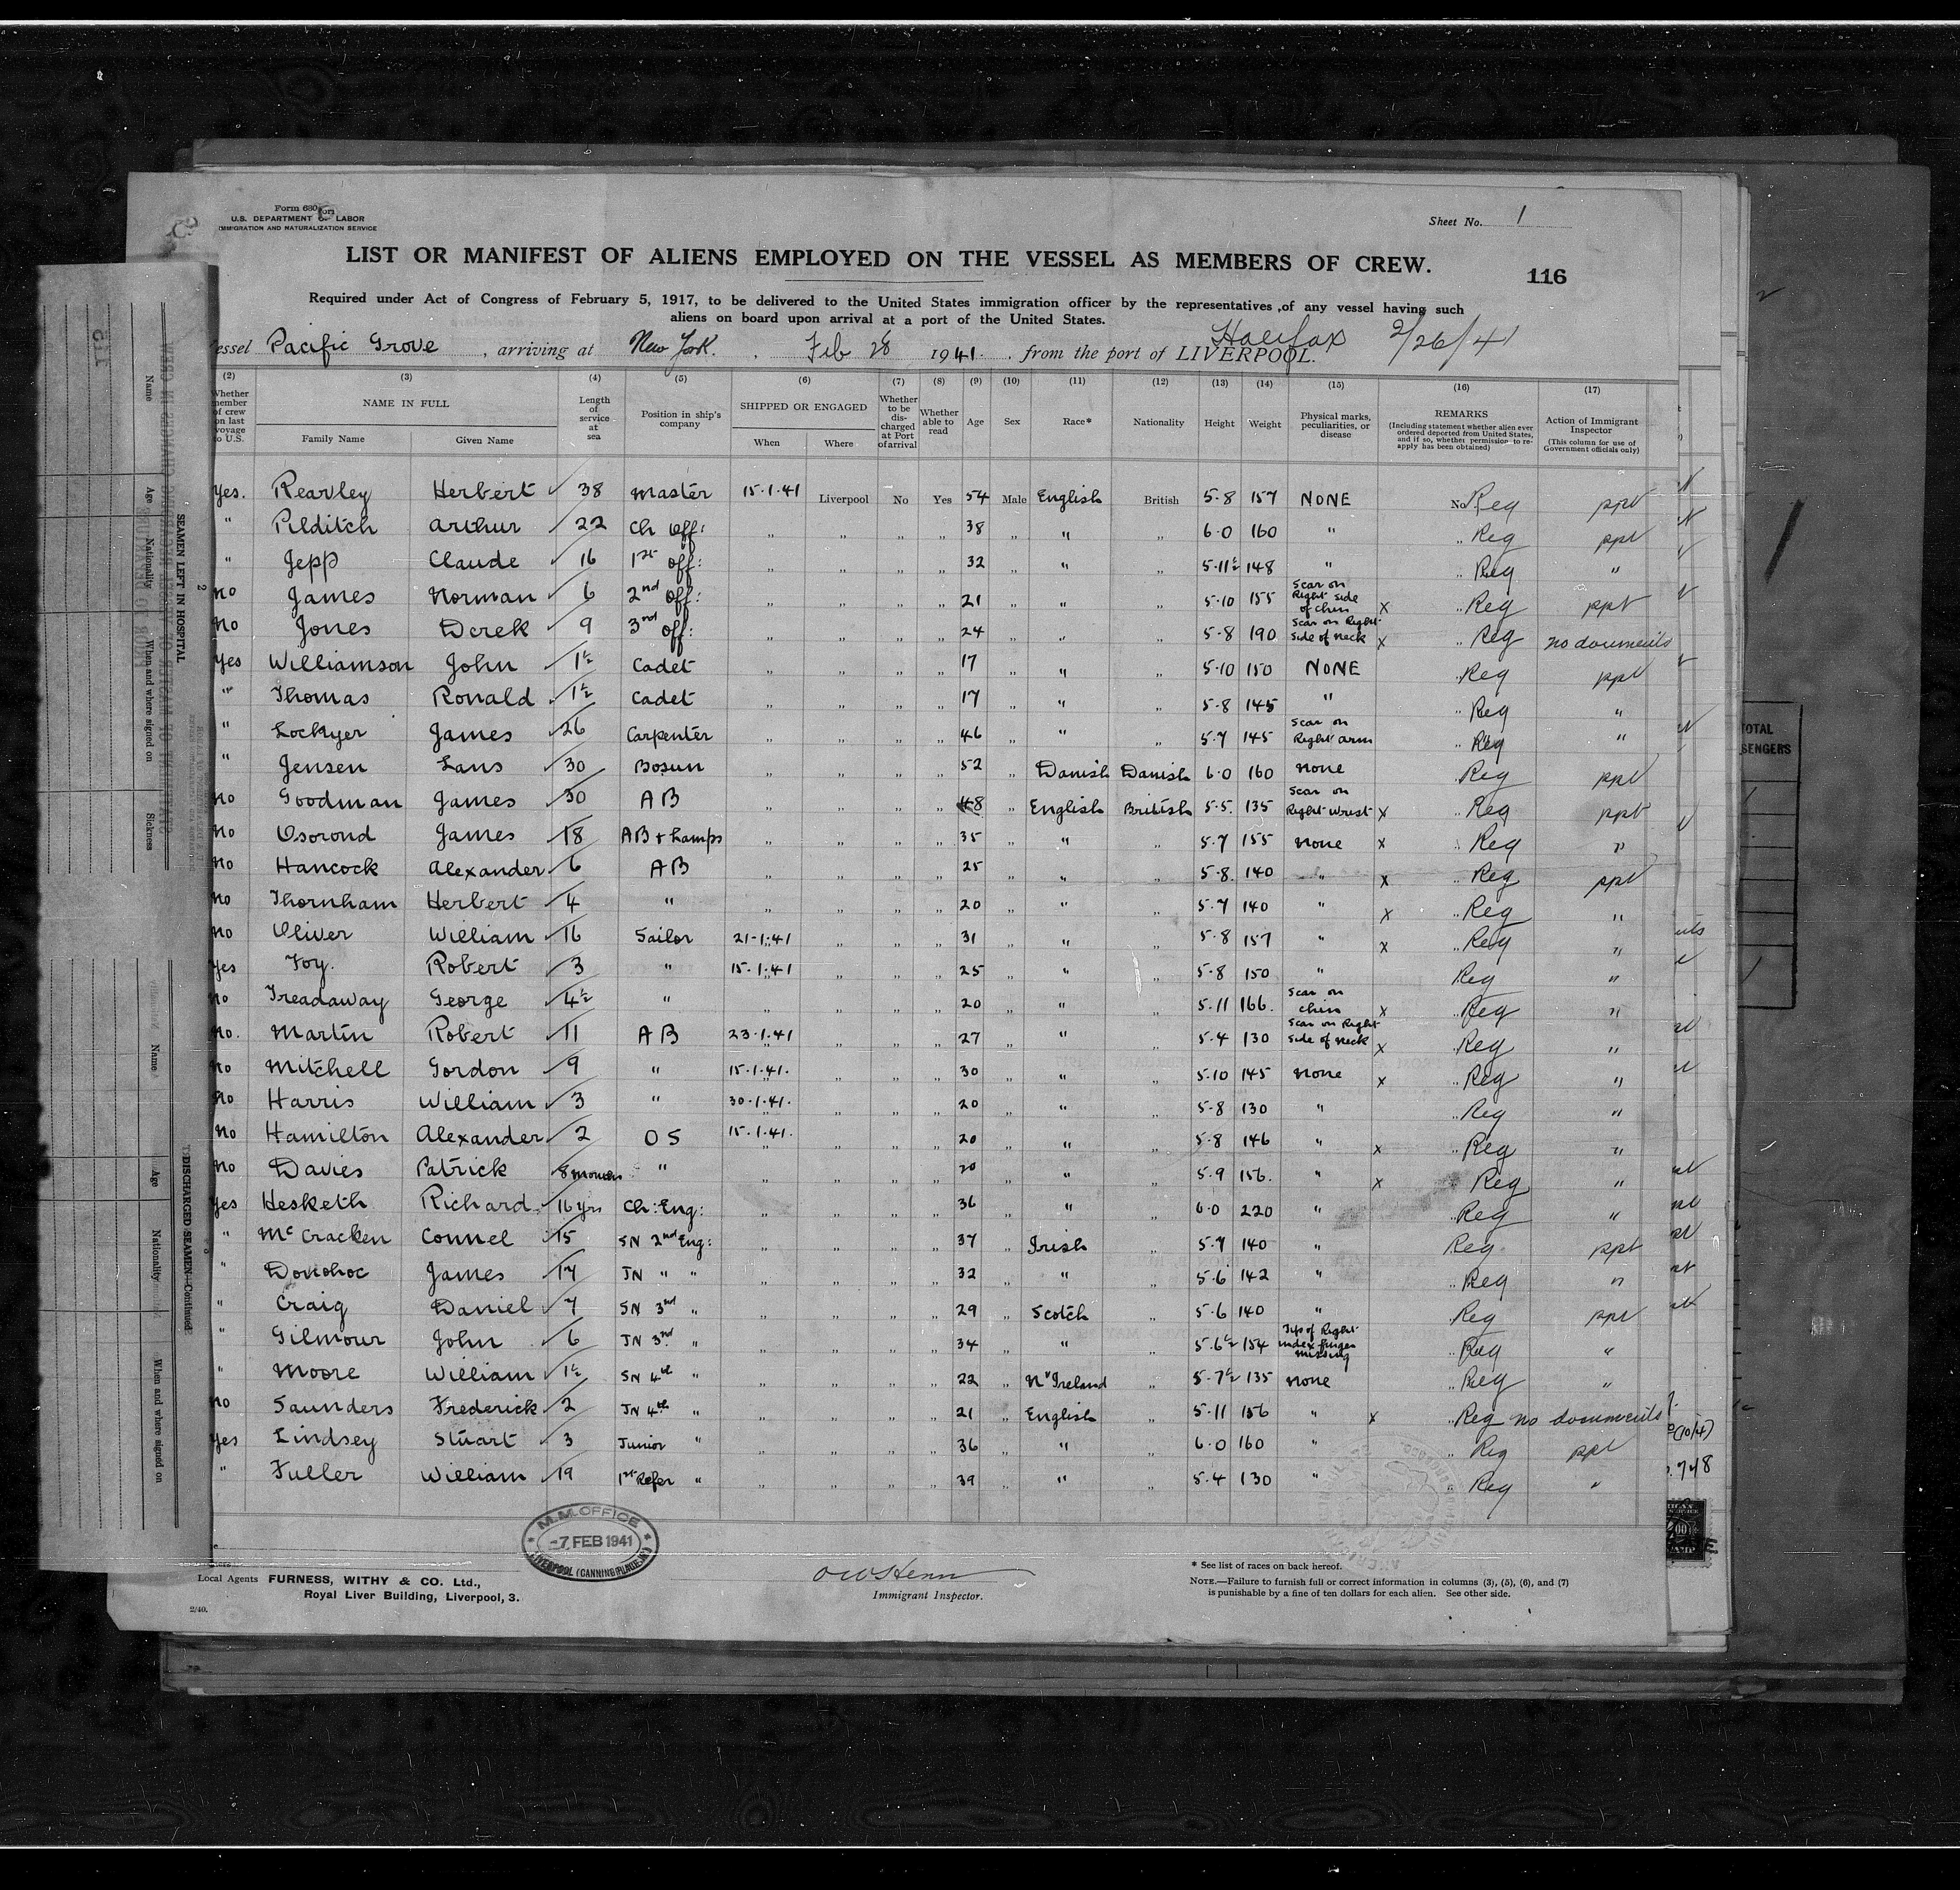 Form 680
U.S. DEPARTMENT OF LABOR
IMMIGRATION AND NATURALIZATION SERVICE
Sheet No. 1
LIST OR MANIFEST OF ALIENS EMPLOYED ON THE VESSEL AS MEMBERS OF CREW.
116
Required under Act of Congress of February 5, 1917, to be delivered to the United States immigration officer by the representatives of any vessel having such
aliens on board upon arrival at a port of the United States.
essel Pacific Grove, arriving at New York. Feb 28 1941. from the port of LIVERPOOL. Halifax 2/26/41
(2) (3) (4) (5) (6) (7) (8) (9) (10) (11) (12) (13) (14) (15) (16) (17)
Whether member of crew on last voyage to U.S. NAME IN FULL Family Name Given Name Length of service at sea Position in ship's company SHIPPED OR ENGAGED When Where Whether to be discharged at Port of arrival Whether able to read Age Sex Race* Nationality Height Weight Physical marks, peculiarities, or disease REMARKS (Including statement whether alien ever ordered deported from United States, and if so, whether permission to reapply has been obtained) Action of Immigrant Inspector (This column for use of Government officials only)
Yes. Rearley Herbert 38 Master 15.1.41 Liverpool No Yes 54 Male English British 5.8 157 NONE No Reg ppt
" Pilditch Arthur 22 Ch Off: " " " " 38 " " " 6.0 160 " " Reg ppt
" Jepp Claude 16 1st Off: " " " " 32 " " " 5.11½ 148 " " Reg "
No James Norman 6 2nd Off: " " " " 21 " " " 5.10 155 Scar on Right side of chin x " Reg ppt
No Jones Derek 9 3rd Off: " " " " 24 " " " 5.8 190 Scar on Right side of neck x " Reg no documents
Yes Williamson John 1½ Cadet " " " " 17 " " " 5.10 150 NONE " Reg ppt
" Thomas Ronald 1½ Cadet " " " " 17 " " " 5.8 145 " " Reg "
" Lockyer James 26 Carpenter " " " " 46 " " " 5.7 145 Scar on Right arm " Reg "
" Jensen Lans 30 Bosun " " " " 52 " Danish Danish 6.0 160 none Reg ppt
No Goodman James 30 AB " " " " 48 " English British 5.5. 135 Scar on Right wrist x " Reg ppt
No Osorond James 18 AB + Lamps " " " " 35 " " " 5.7 155 none x " Reg "
No Hancock Alexander 6 AB " " " " 25 " " " 5.8. 140 " x " Reg ppt
No Thornham Herbert 4 " " " " " 20 " " " 5.7 140 " x " Reg "
No Oliver William 16 Sailor 21-1.41 " " " 31 " " " 5.8 157 " x " Reg "
Yes Foy. Robert 3 " 15.1.41 " " " 25 " " " 5.8 150 " Reg "
No Treadaway George 4½ " " " " " 20 " " " 5.11 166. Scar on chin x " Reg "
No. Martin Robert 11 AB 23.1.41 " " " 27 " " " 5.4 130 Scar on Right side of neck x " Reg "
No Mitchell Gordon 9 " 15.1.41. " " " 30 " " " 5.10 145 none x " Reg "
No Harris William 3 " 30.1.41. " " " 20 " " " 5.8 130 " " Reg "
No Hamilton Alexander 2 OS 15.1.41. " " " 20 " " " 5.8 146 " x " Reg "
No Davies Patrick 8 months " " " " " 20 " " " 5.9 156. " x " Reg "
Yes Hesketh Richard 16 yrs Ch: Eng: " " " " 36 " " " 6.0 220 " " Reg "
" McCracken Connel 15 SN 2nd Eng: " " " " 37 " Irish " 5.7 140 " Reg ppt
" Donohoe James 14 JN " " " " " " 32 " " " 5.6 142 " " Reg "
" Craig Daniel 7 SN 3rd " " " " " 29 " Scotch " 5.6 140 " Reg ppt
" Gilmour John 6 JN 3rd " " " " " 34 " " " 5.6½ 154 Tip of Right index finger missing " Reg "
" Moore William 1½ SN 4th " " " " " 22 " N'Ireland " 5.7½ 135 none " Reg "
No Saunders Frederick 2 JN 4th " " " " " 21 " English " 5.11 156 " x " Reg no documents
Yes Lindsey Stuart 3 Junior " " " " " 36 " " " 6.0 160 " " Reg ppt
" Fuller William 19 1st Refer " " " " " 39 " " " 5.4 130 " " Reg "
M.M. OFFICE
-7 FEB 1941
LIVERPOOL (CANNING PLACE)
Local Agents FURNESS, WITHY & CO. Ltd.,
Royal Liver Building, Liverpool, 3.
2/40.
Immigrant Inspector.
* See list of races on back hereof.
NOTE.—Failure to furnish full or correct information in columns (3), (5), (6), and (7)
is punishable by a fine of ten dollars for each alien. See other side.
SEAMEN LEFT IN HOSPITAL
Name
Age
Nationality
When and where signed on
Sickness
DISCHARGED SEAMEN—Continued
Name
Age
Nationality
When and where signed on
115
2
TOTAL
SENGERS
(10/4)
.748